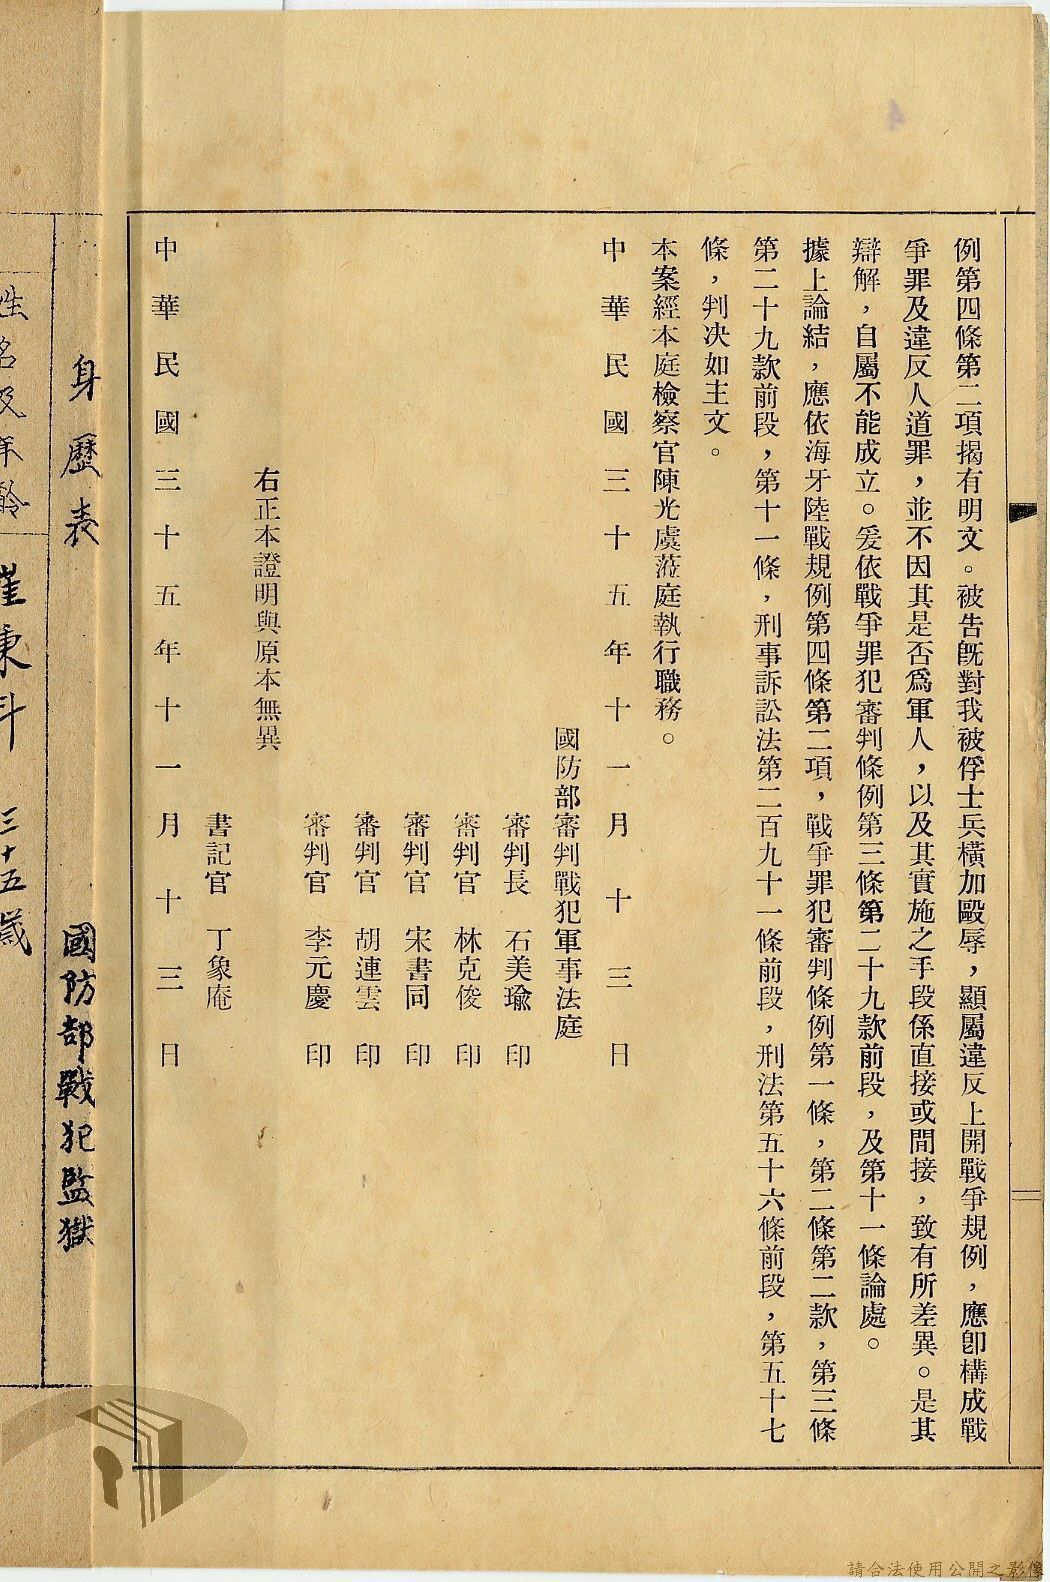 例第四條第二項揭有明文。被告旣對我被俘士兵橫加毆辱，顯屬違反上開戰爭規例，應卽構成戰
爭罪及違反人道罪，並不因其是否爲軍人，以及其實施之手段係直接或間接，致有所差異。是其
辯解，自屬不能成立。爰依戰爭罪犯審判條例第三條第二十九款前段，及第十一條論處。
據上論結，應依海牙陸戰規例第四條第二項，戰爭罪犯審判條例第一條，第二條第二款，第三條
第二十九款前段，第十一條，刑事訴訟法第二百九十一條前段，刑法第五十六條前段，第五十七
條，判决如主文。
本案經本庭檢察官陳光虞蒞庭執行職務。
中華民國三十五年十一月十三日
國防部審判戰犯軍事法庭
審判長　石美瑜　印
審判官　林克俊　印
審判官　宋書同　印
審判官　胡連雲　印
審判官　李元慶　印
右正本證明與原本無異
書記官　丁象庵
中華民國三十五年十一月十三日
身歷表　國防部戰犯監獄
姓名及年齡　崔秉斗　三十五歲
4
請合法使用公開之影像